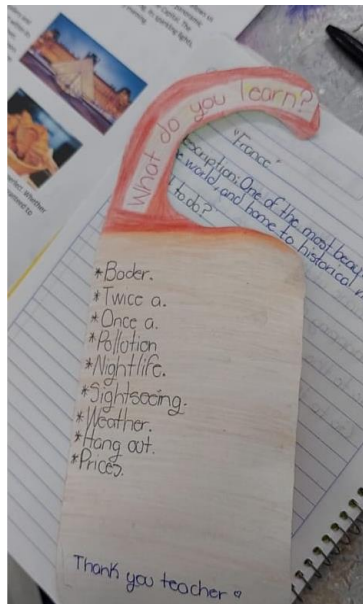 What do you learn?
"France"
escription: One of the most beau
e world, and home to historical
to do?
*Boder.
*Twice a.
*Once a.
*Pollution
*Nightlife.
*Sightseeing.
*Weather.
*Hang out.
*Prices.
Thank you teacher